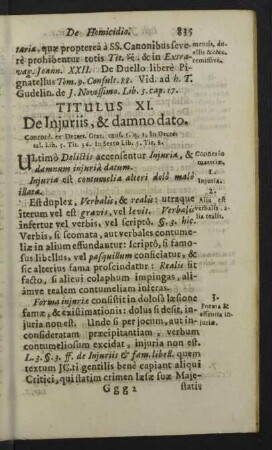 De Homicidio. 835
tariæ, quæ propterea à SS. Canonibus seve-
rè prohibentur totis Tit. ff. & in Extra-
vag. Joann. XXII. De Duello liberè Pi-
gnatellus Tom. 9. Consult. 88. Vid. ad h. T.
Gudelin. de J. Novissimo. Lib. 5. cap. 17.
TITULUS XI.
De Injuriis, & damno dato.
Concord. ex Decret. Grat. caus. 5. q. 1. In Decre-
tal. Lib. 5. Tit. 36. In Sexto Lib. 5. Tit. 8.
ULtimò Delictis accensentur Injuriæ, &
damnum injuriâ datum.
Injuria est contumelia alteri dolo malo
illata.
Est duplex, Verbalis, & realis: utraque
iterum vel est gravis, vel levis. Verbalis
infertur vel verbis, vel scriptô. §. 3. hic.
Verbis, si scomata, aut verbales contume-
liæ in alium effundantur: Scriptô, si famo-
sus libellus, vel pasquillum conficiatur, &
sic alterius fama proscindatur: Realis fit
facto, si alicui colaphum impingas, ali-
ámve realem contumeliam inferas.
Forma injuriæ consistit in dolosâ læsione
famæ, & existimationis: dolus si desit, in-
juria non est. Unde si per jocum, aut in-
consideratam præcipitantiam, verbum
contumeliosum excidat, injuria non est.
L. 3. §. 3. ff. de Injuriis & fam. libell. quem
textum JC.ti gentilis benè capiant aliqui
Critici, qui statim crimen læsæ suæ Maje-
Ggg 2 statis
mentis, du-
remissivè.
Connexio
1.
Injuria.
2.
Alia est
verbalis, a-
lia realis.
3.
injuriæ.